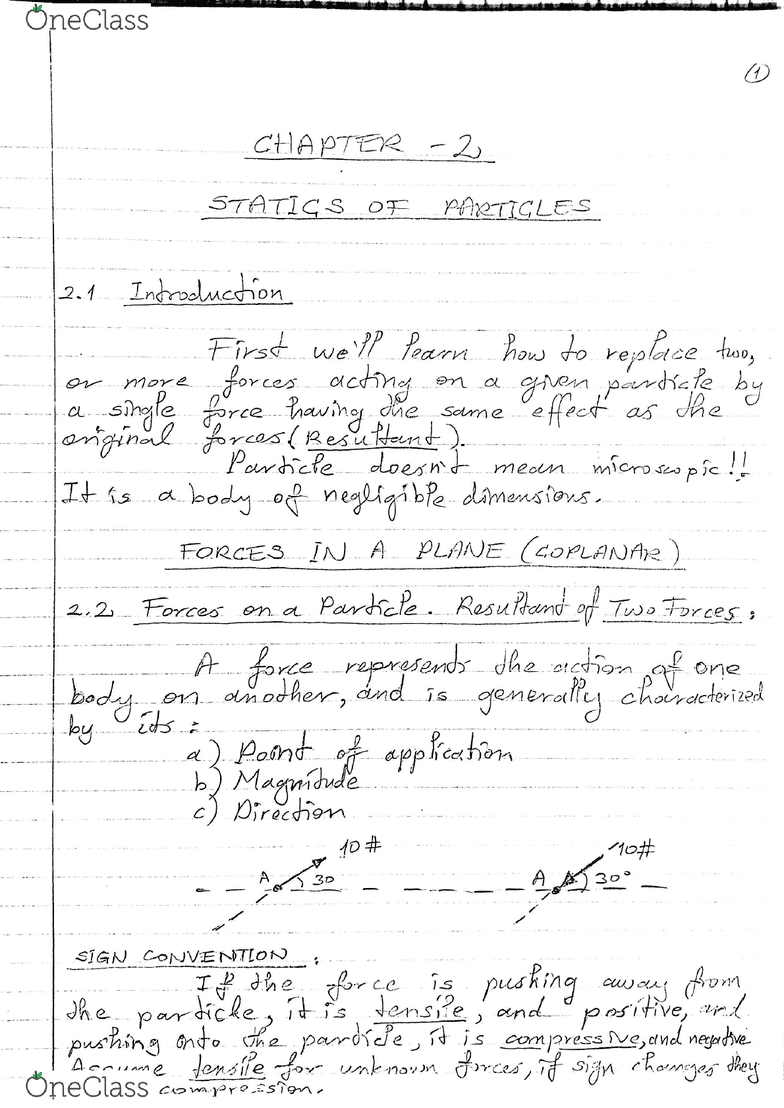 OneClass
1
CHAPTER - 2
STATICS OF PARTICLES
2.1 Introduction
First we'll learn how to replace two,
or more forces acting on a given particle by
a single force having the same effect as the
original forces (Resultant).
Particle doesn't mean microscopic!!
It is a body of negligible dimensions.
FORCES IN A PLANE (COPLANAR)
2.2 Forces on a Particle. Resultant of Two Forces:
A force represents the action of one
body on another, and is generally characterized
by its:
a) Point of application
b) Magnitude
c) Direction
10# 10#
A 30 A 30°
SIGN CONVENTION:
If the force is pushing away from
the particle, it is tensile, and positive, and
pushing onto the particle, it is compressive, and negative
Assume tensile for unknown forces, if sign changes they
OneClass compression.